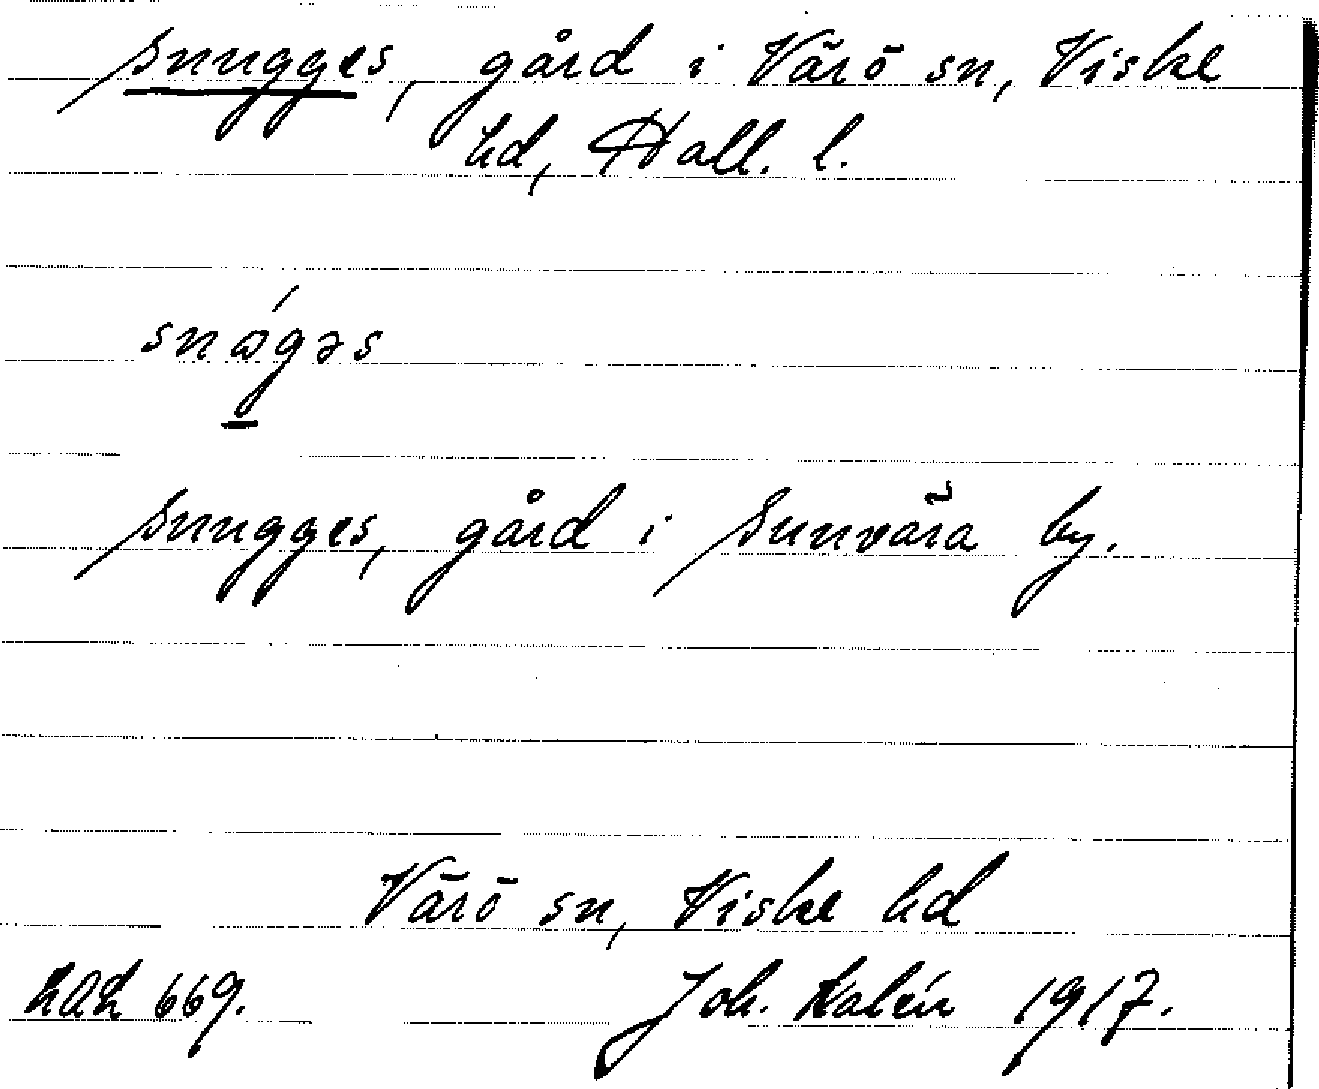 Snugges, gård i Värö sn, Viske
hd, Hall. l.
snógəs
Snugges, gård i Sunvära by.
Värö sn, Viske hd
669.
Joh. Kalén 1917.